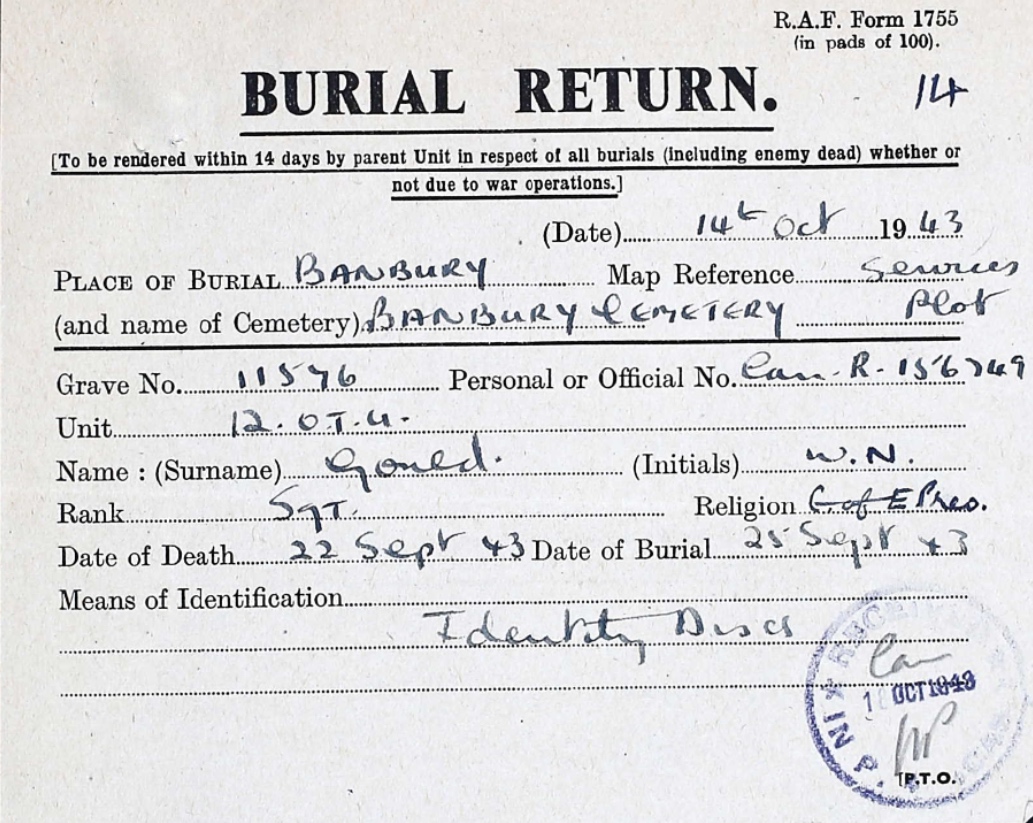 R.A.F. Form 1755
(in pads of 100).
BURIAL RETURN.
14
[To be rendered within 14 days by parent Unit in respect of all burials (including enemy dead) whether or
not due to war operations.]
(Date) 14th Oct 1943
PLACE OF BURIAL BANBURY Map Reference Services
(and name of Cemetery) BANBURY CEMETERY Plot
Grave No. 11576 Personal or Official No. Can. R. 156749
Unit 12. O.T.U.
Name : (Surname) Gould. (Initials) W.N.
Rank Sgt. Religion C of E Pres.
Date of Death 22 Sept 43 Date of Burial 25 Sept 43
Means of Identification
Identity Discs
RECEIVED
Can
OCT 1943
IN P.
[P.T.O.